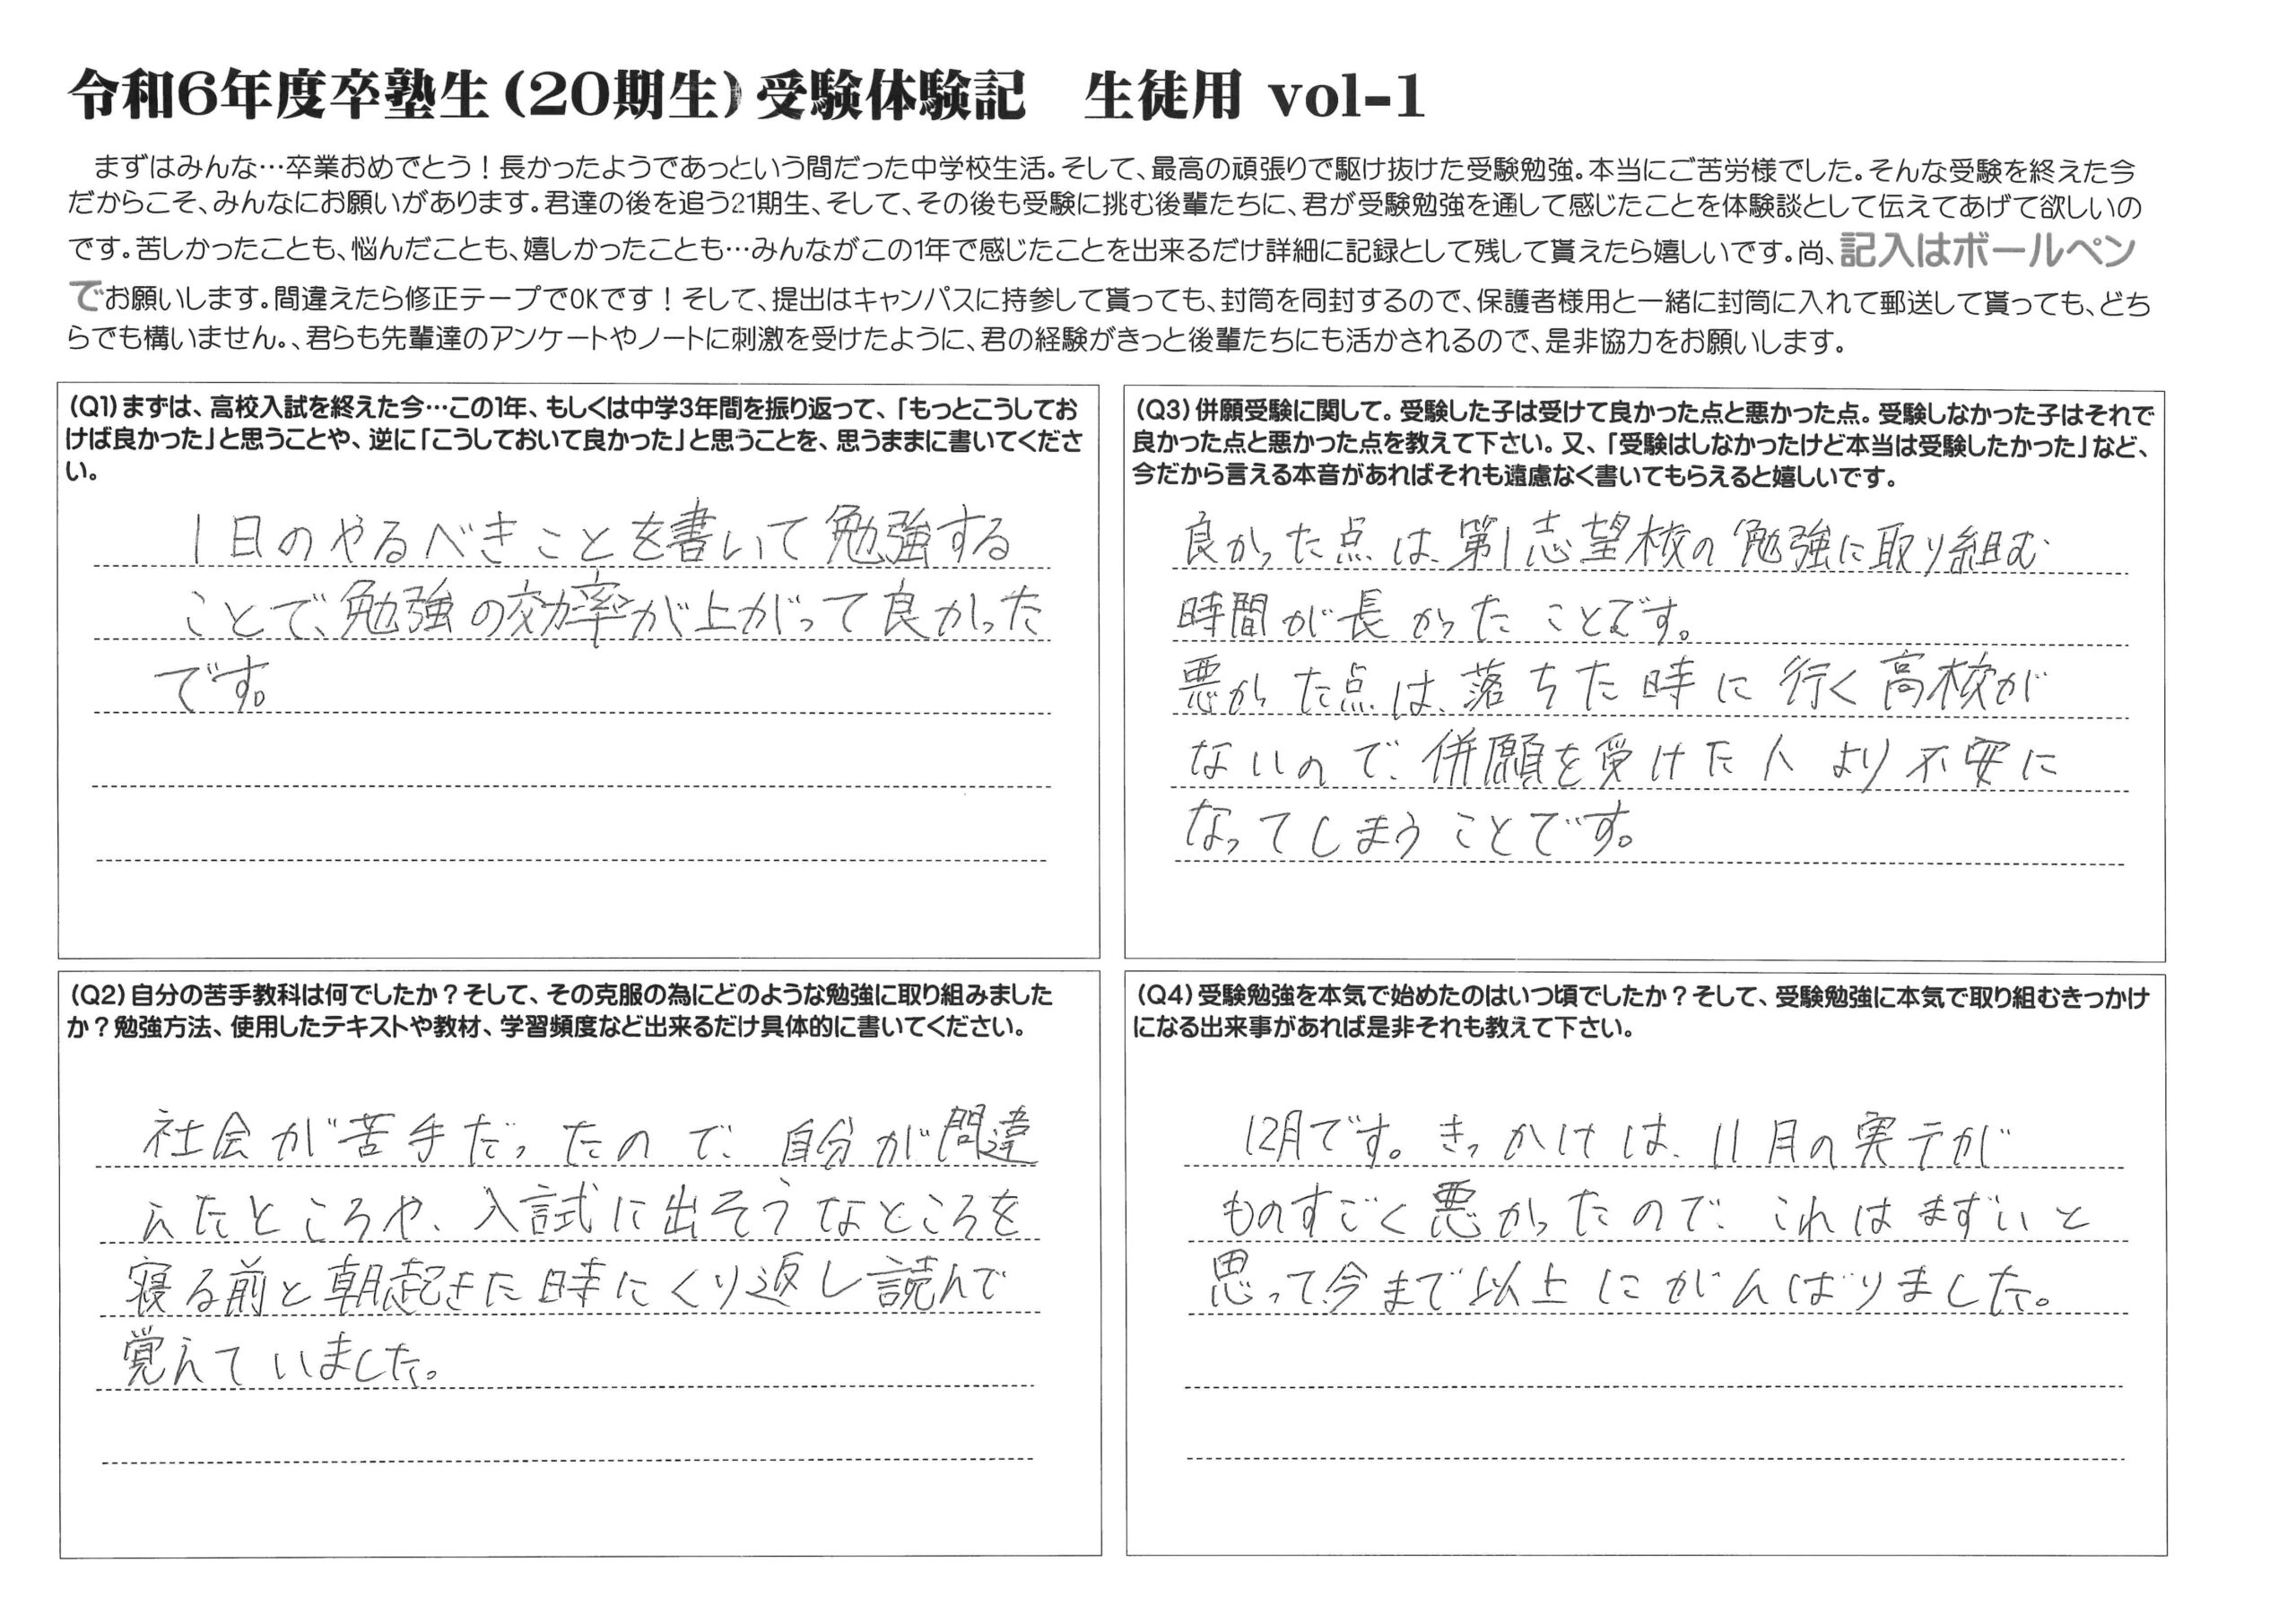 令和6年度卒塾生(20期生)受験体験記　生徒用 vol-1
まずはみんな…卒業おめでとう！長かったようであっという間だった中学校生活。そして、最高の頑張りで駆け抜けた受験勉強。本当にご苦労様でした。そんな受験を終えた今
だからこそ、みんなにお願いがあります。君達の後を追う21期生、そして、その後も受験に挑む後輩たちに、君が受験勉強を通して感じたことを体験談として伝えてあげて欲しいの
です。苦しかったことも、悩んだことも、嬉しかったことも…みんながこの1年で感じたことを出来るだけ詳細に記録として残して貰えたら嬉しいです。尚、記入はボールペン
でお願いします。間違えたら修正テープでOKです！そして、提出はキャンパスに持参して貰っても、封筒を同封するので、保護者様用と一緒に封筒に入れて郵送して貰っても、どち
らでも構いません。、君らも先輩達のアンケートやノートに刺激を受けたように、君の経験がきっと後輩たちにも活かされるので、是非協力をお願いします。
(Q1)まずは、高校入試を終えた今…この1年、もしくは中学3年間を振り返って、「もっとこうしてお
けば良かった」と思うことや、逆に「こうしておいて良かった」と思うことを、思うままに書いてくださ
い。
1日のやるべきことを書いて勉強する
ことで、勉強の効率が上がって良かった
です。
(Q2)自分の苦手教科は何でしたか？そして、その克服の為にどのような勉強に取り組みました
か？勉強方法、使用したテキストや教材、学習頻度など出来るだけ具体的に書いてください。
社会が苦手だったので、自分が間違
えたところや、入試に出そうなところを
寝る前と朝起きた時にくり返し読んで
覚えていました。
(Q3)併願受験に関して。受験した子は受けて良かった点と悪かった点。受験しなかった子はそれで
良かった点と悪かった点を教えて下さい。又、「受験はしなかったけど本当は受験したかった」など、
今だから言える本音があればそれも遠慮なく書いてもらえると嬉しいです。
良かった点は、第1志望校の勉強に取り組む
時間が長かったことです。
悪かった点は、落ちた時に行く高校が
ないので、併願を受けた人より不安に
なってしまうことです。
(Q4)受験勉強を本気で始めたのはいつ頃でしたか？そして、受験勉強に本気で取り組むきっかけ
になる出来事があれば是非それも教えて下さい。
12月です。きっかけは、11月の実テが
ものすごく悪かったので、これはまずいと
思って今まで以上にがんばりました。